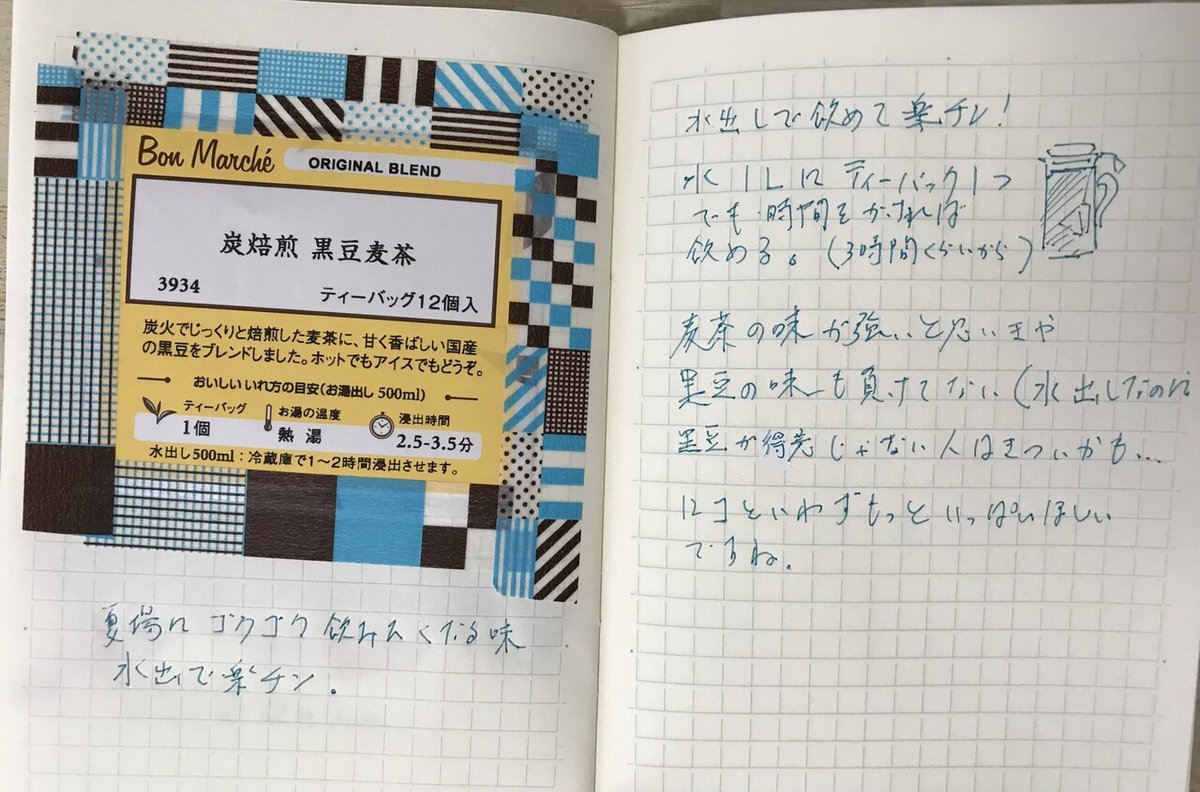 Bon Marché ORIGINAL BLEND
炭焙煎 黒豆麦茶
3934
ティーバッグ12個入
炭火でじっくりと焙煎した麦茶に、甘く香ばしい国産
の黒豆をブレンドしました。ホットでもアイスでもどうぞ。
おいしい いれ方の目安(お湯出し 500ml)
ティーバッグ
1個
お湯の温度
熱 湯
浸出時間
2.5-3.5分
水出し500ml:冷蔵庫で1〜2時間浸出させます。
夏場にゴクゴク飲みたくなる味
水出で楽チン.
水出しで飲めて楽チン!
水1Lにティーバック1つ
でも時間をかければ
飲める。(3時間くらいから)
麦茶の味が強いと思いきや
黒豆の味も負けてない(水出しなのに
黒豆が得意じゃない人はきついかも...
12コといわずもっといっぱいほしい
ですね.